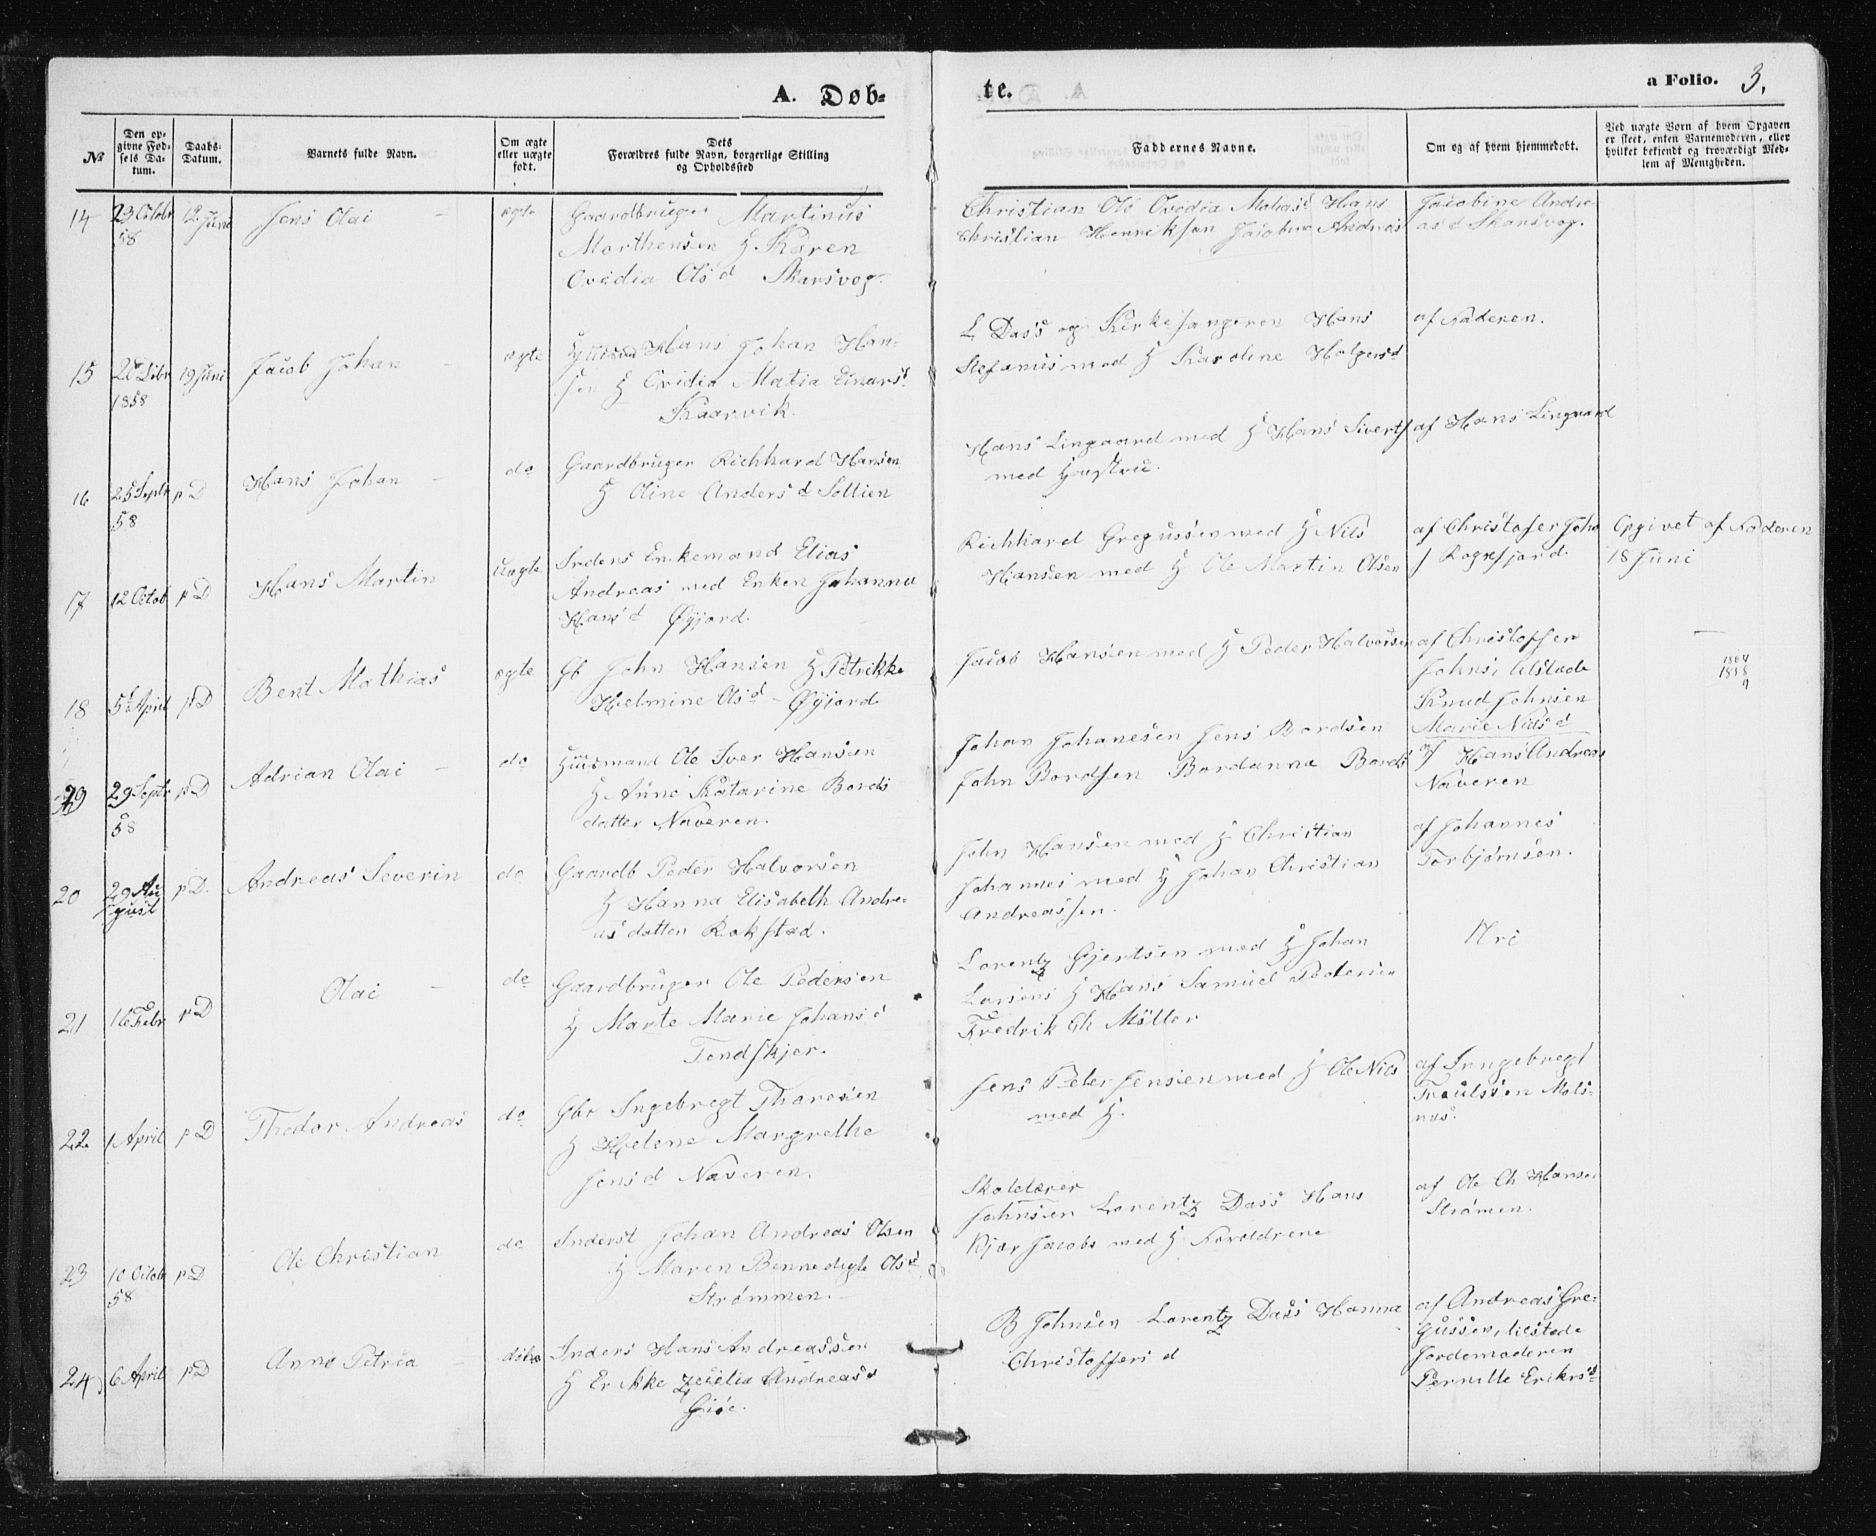 A. Døb-
te.
a Folio. 3.
No
Den op-
givne Fød-
sels Da-
tum.
Daabs-
Datum.
Barnets fulde Navn.
Om ægte
eller uægte
født.
Dets
Forældres fulde Navn, borgerlige Stilling
og Opholdssted
Faddernes Navne.
Om og af hvem hjemmedøbt.
Ved uægte Børn af hvem Opgaven
er skeet, enten Barnemoderen, eller
hvilket bekjendt og troværdigt Med-
lem af Menigheden.
14 23 Octobr 12 Juni Jens Olai – ægte Gaardbruger Martinus
58
Morthensen H Karen
Ovidia Ols d Skarsvog
Christian Ols Ovedia Mathias d Hans
Christian Henriksen Jacobine Andreas
Jacobine Andre
as d Skarsvog.
15 19 Juni Jacob Johan – ægte Huusmand Hans Johan Han-
1858
sen H Ovidia Matia Einars d
Kaarvik.
L Dass og Kirkesangeren Hans
Stefanus med H Karoline Holgers d
af Faderen.
16 25 Septr p D Hans Johan – do Gaardbruger Richhard Hansen
58
H Oline Anders d Soltien
Hans Lingaard med H Hans Siverts
med Hustrue.
af Hans Lingaard
17 12 Octob p D Hans Martin uægte Inders Enkemand Elias
Andreas med Enken Johanna
Hans d Øyjord.
Richhard Gregussen med H Nils
Hansen med H Ole Martin Olsen
af Christofer Johs
Opgivet af Faderen
18 Juni
18 5t April p D Bent Mathias ægte Gb John Hansen H Petrikke
Helmine Ols d – Øyjord
Jacob Hansen med H Peder Halvorsen
af Christoffer
Johns, tilstede
Knud Johnsen
Marie Nils d
–
1864
1858
9
19 29 Septr p D Adrian Olai – do Huusmand Ole Iver Hansen
58
H Anne Katarine Bords
datter Naveren.
Johan Johanesen Jens Bordsen
John Bordsen Bordanna Bords
af Hans Andreas
Naveren
20 29 Au p D. Andreas Severin do Gaardb Peder Halvorsen
gust
H Hanna Elisabeth Andre-
as datter Rokstad.
John Hansen med H Christian
Johannes med H Johan Christian
Andreassen.
af Johannes
Torbjørnsen.
21 16 Febr p D Olai – do Gaardbruger Ole Pedersen
H Marte Marie Johans d
Tendskjer.
Lorentz Gjertsen med H Johan
Larsens H Hans Samuel Pedersen
Fredrik Ch Møller
Nei
22 1 April p D Thodor Andreas do Gbr Ingebregt Tharesen
H Helene Margrethe
Jens d Naveren.
Jens Peter Jensen med H Ole Nils
med H.
af Inngebregt
Troulssen Mols-
nes.
23 10 Octob p D Ole Christian do Inderst Johan Andreas Olsen
58
H Maren Bennedigte Ols d
Strømmen.
Skolelærer
Johnsen Lorentz Dass Hans
Kjær Jacobs med H Foreldrene
af Ole Ch Hansen
Strømen.
24 6 April p D Anne Petria – ditto Inders Hans Andreassen
H Erikke Zesilia Andreas d
Giøe.
B Johnsen Lorentz Dass Hanna
Christoffers d
af Andreas Gre-
gussen, tilstede
Jordemoderen
Pernille Eriks d